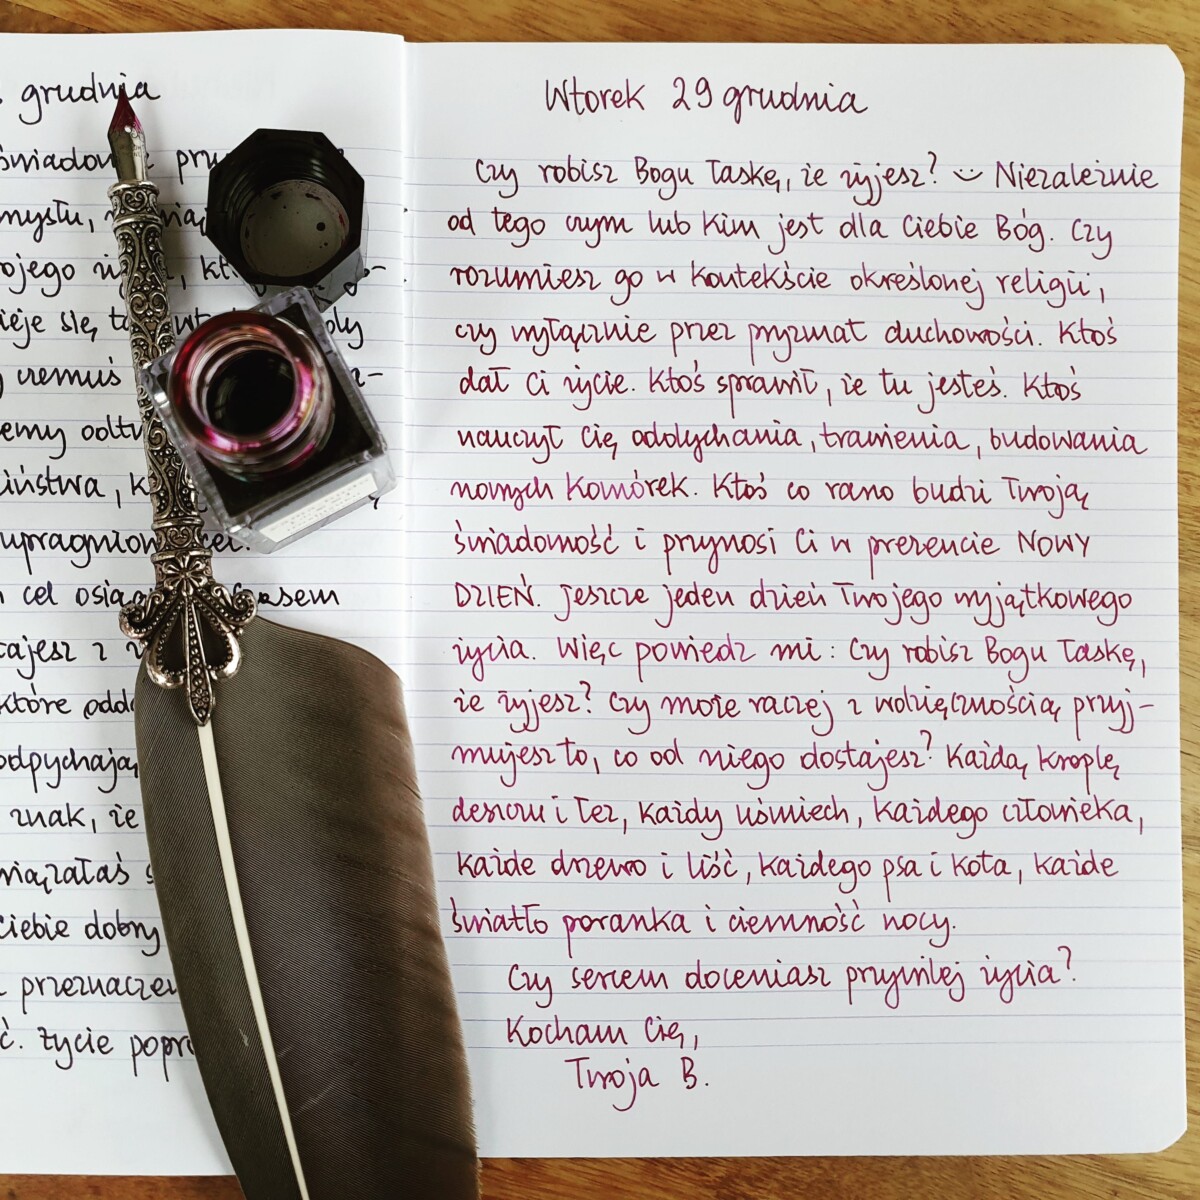 grudnia
mysłu,
czemuś
upragniony cel.
cel osiąg
tajesz z
które odd
odpychają
znak, że
Ciebie dobry
przeznaczen
ć. Życie popr
Wtorek 29 grudnia
Czy robisz Bogu łaskę, że żyjesz? Niezależnie
od tego czym lub kim jest dla Ciebie Bóg. Czy
rozumiesz go w kontekście określonej religii,
czy wyłącznie przez pryzmat duchowości. Ktoś
dał Ci życie. Ktoś sprawił, że tu jesteś. Ktoś
nauczył Cię oddychania, trawienia, budowania
nowych komórek. Ktoś co rano budzi Twoją
świadomość i przynosi Ci w prezencie NOWY
DZIEŃ. Jeszcze jeden dzień Twojego wyjątkowego
życia. Więc powiedz mi: Czy robisz Bogu łaskę,
że żyjesz? Czy może raczej z wdzięcznością przyj-
mujesz to, co od niego dostajesz? Każdą kroplę
deszczu i łez, każdy uśmiech, każdego człowieka,
każde drzewo i liść, każdego psa i kota, każde
światło poranka i ciemność nocy.
Czy sercem doceniasz przywilej życia?
Kocham Cię,
Twoja B.